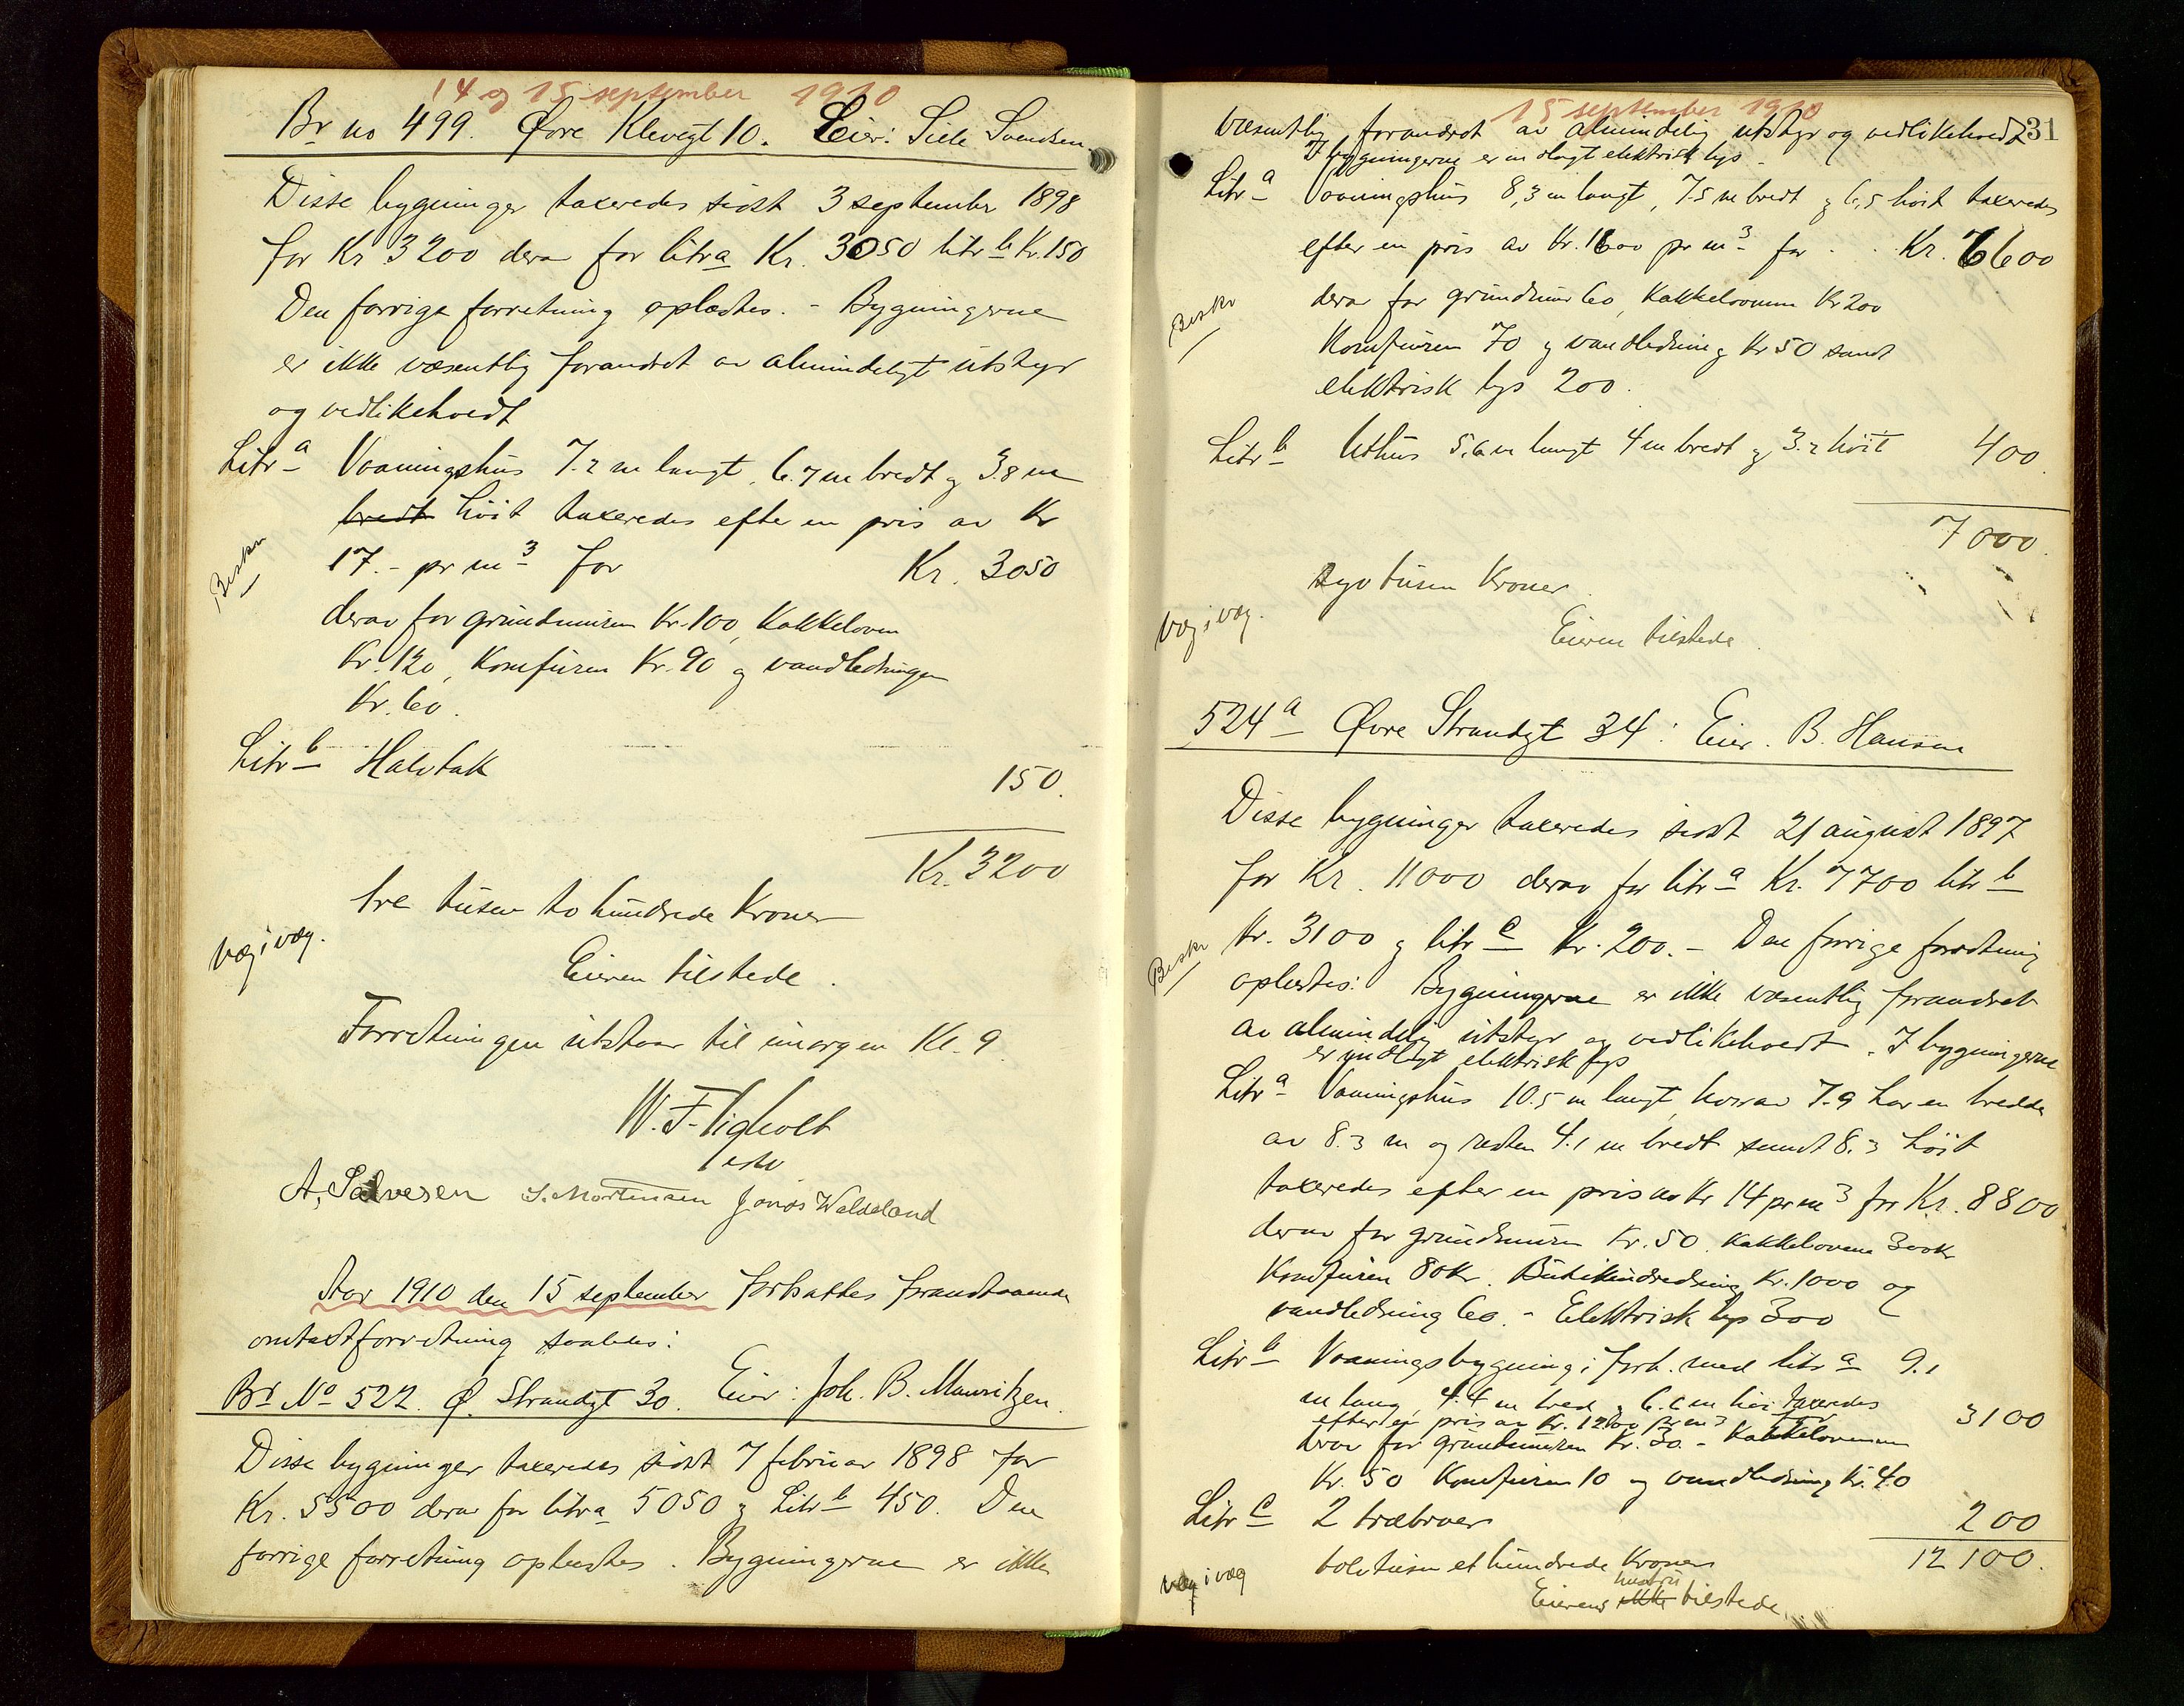 14 og 15 september 1910
Br no 499. Øvre Klevegt 10. Eier: Sille Svendsen
Disse bygninger taxeredes sidst 3 september 1898
for Kr 3200 derav for litra Kr. 3050 litr b Kr. 150
Den forrige forretning oplæstes. - Bygningerne
er ikke væsentlig forandret av almindeligt utstyr
og vedlikeholdt
Litr a Vaaningshus 7.2 m langt, 6.7 m bredt og 3.8 m
bredt höit taxeredes efter en pris av Kr
17.- pr m3 for Kr. 3050
Beskr
derav for grundmuren Kr. 100, Kakkeloven
Kr. 120, Komfuren Kr. 90 og vandledningen
Kr. 60.
Litr b Halvtak 150.
Kr. 3200
tre tusen to hundrede Kroner
væg i væg.
Eieren tilstede.
Forretningen utstaar til imorgen Kl. 9.
W. F.
A. Salvesen S. Mortensen Jonas Waldeland
Aar 1910 den 15 september fortsattes foranstaaende
omtaxtforretning saaledes:
Br No 522. Ø. Strandgt 30. Eier: Joh. B. Mauritzen.
Disse bygninger taxeredes sidst 7 februar 1898 for
Kr. 5500 derav for litra 5050 og Litr b 450. Den
forrige forretning oplæstes. Bygningerne er ikke
15 september 1910
231
væsentlig forandret av almindelig utstyr og vedlikeholdt
I bygningerne er indlagt elektrisk lys.
Litr a Vaaningshus 8,3 m langt, 7.5 m bredt og 6,5 höit taxeredes
efter en pris av Kr. 16.00 pr m3 for Kr. 6600
Beskr
derav for grundmur 60, Kakkelovnene Kr 200
Komfuren 70 og vandledning Kr 50 samt
elektrisk lys 200.
Litr b Uthus 5.6 m langt 4 m bredt og 3.2 höit 400.
7000.
syv tusen Kroner.
væg i væg.
Eieren tilstede.
524 a Øvre Strandgt 34: Eier. B. Hansen
Disse bygninger taxeredes sidst 21 august 1897
for Kr. 11000 derav for litr a Kr. 7700 litr b
Kr. 3100 og litr c Kr. 200. - Den forrige forretning
Beskr
oplæstes: Bygningerne er ikke væsentlig forandret
av almindelig utstyr og vedlikeholdt. I bygningerne
er indlagt elektrisk lys
Litr a Vaaningshus 10.5 m langt, hvorav 7.9 har en bredde
av 8.3 m og resten 4.1 m bredt samt 8.3 höit
taxeredes efter en pris av Kr 14 pr m3 for Kr. 8800
derav for grundmuren Kr. 50, Kakkelovnene 300 Kr
Komfuren 80 Kr. Butikindredning Kr. 1000 og
vandledning 60. - Elektrisk lys 300
Litr b Vaaningsbygning i forb. med litr a 9.1
m lang, 4.4 m bred og 6.6 m höi taxeredes
efter en pris av Kr. 12.00 pr m3 for 3100
derav for grundmuren Kr. 30. - Kakkelovnene
Kr. 50 Komfuren 10 og vandledning Kr. 40
Litr c 2 træbroer 200
12100.
tolv tusen et hundrede Kroner
væg i væg
hustru
Eierens ikke tilstede.